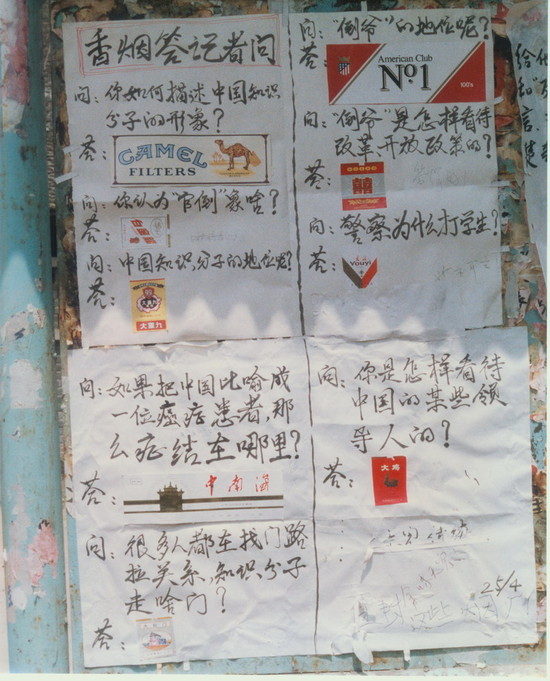 香烟答记者问
问：你如何描述中国知识
分子的形象？
答：
CAMEL
FILTERS
问：你认为“官倒”象啥？
答：
问：中国知识分子的地位呢？
答：
大重九
问：“倒爷”的地位呢？
答：
American Club
No1
100's
问：“倒爷”是怎样看待
改革开放政策的？
答：
囍
问：警察为什么打学生？
答：
YOUYI
问：如果把中国比喻成
一位癌症患者，那
么症结在哪里？
答：
中南海
问：很多人都在找门路
拉关系，知识分子
走啥门？
答：
问：你是怎样看待
中国的某些领
导人的？
答：
大鸡
25/4